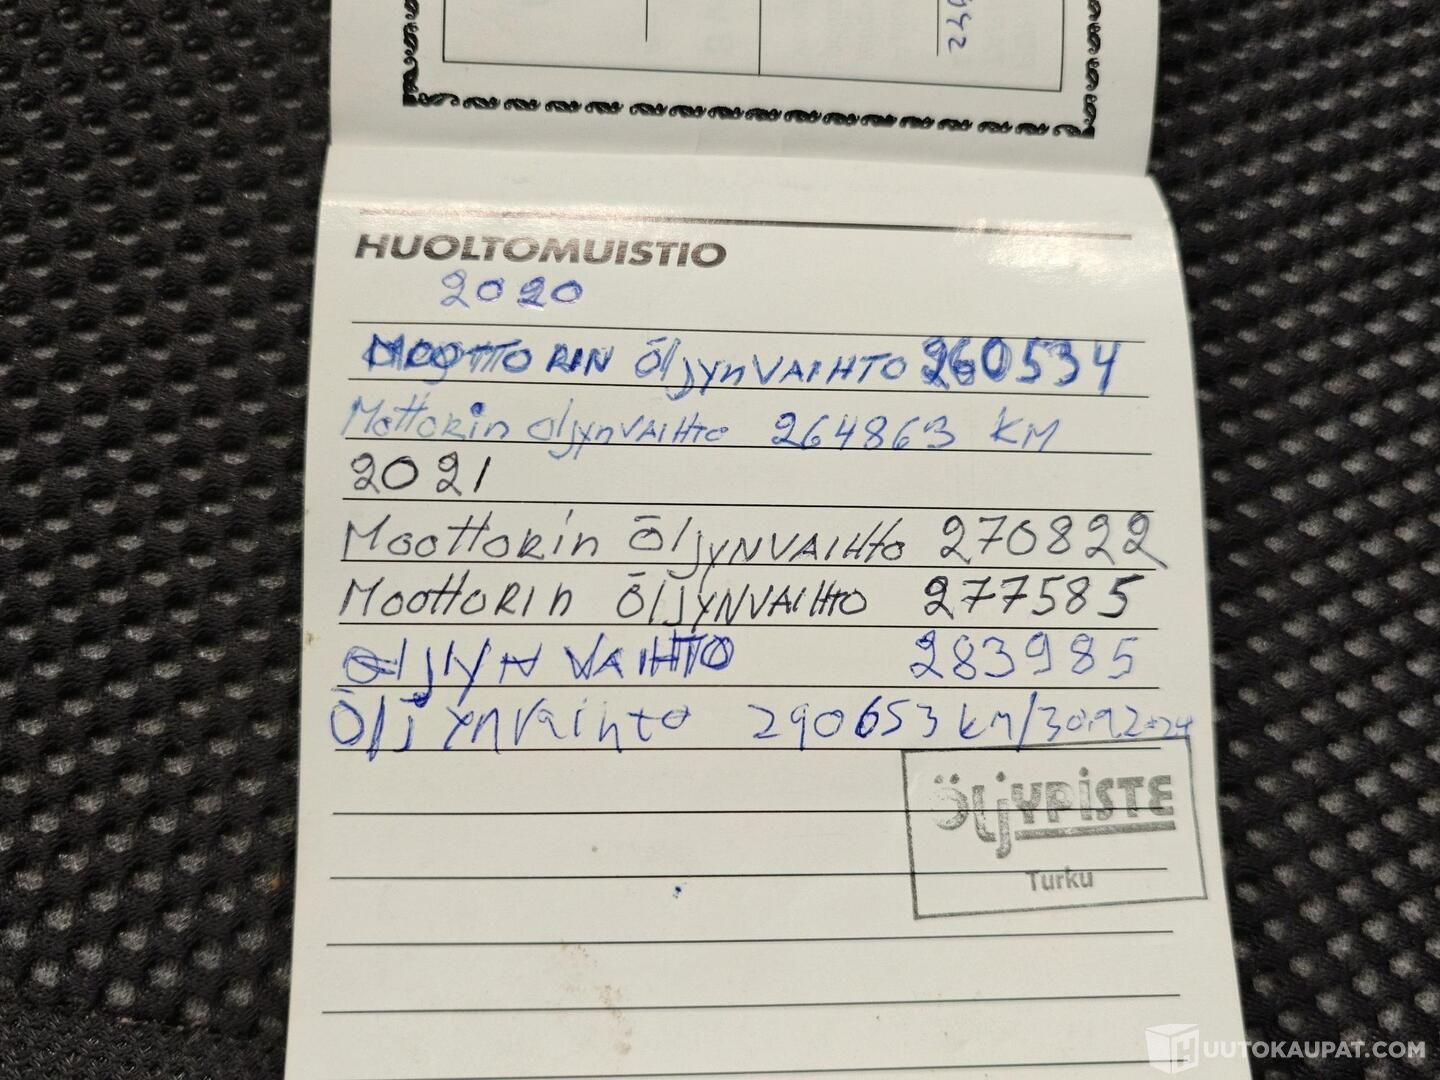 HUOLTOMUISTIO
2020
MOOTTORIN ÖljynVAIHTO 260534
MottoRin öljynVAIHto 264863 KM
2021
MoottoRin ÖljYNVAIHto 270822
MoottoRin ÖljYNVAIHTO 277585
ÖljyN VAIHTO 283985
Öljynvaihto 290653 km/
ÖljYPISTE
Turku
HUUTOKAUPAT.COM